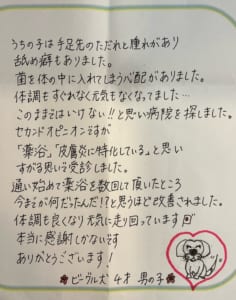 うちの子は手足先のただれと腫れがあり
舐め癖もありました。
菌を体の中に入れてしまう心配がありました。
体調もすぐれなく元気もなくなってました…
このままではいけない!!と思い病院を探しました。
セカンドオピニオンですが
「薬浴」「皮膚炎に特化している」と思い
すがる思いで受診しました。
通い始めて薬浴を数回して頂いたところ
今までが何だったんだ!?と思うほど改善されました。
体調も良くなり元気に走り回っています
本当に感謝しかないです
ありがとうございます!
ビーグル犬 4才 男の子